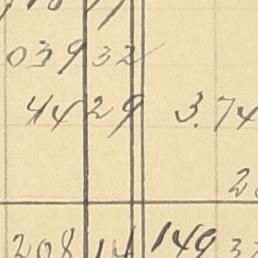 039 32
44 29 3.74
2
208 14 149 3